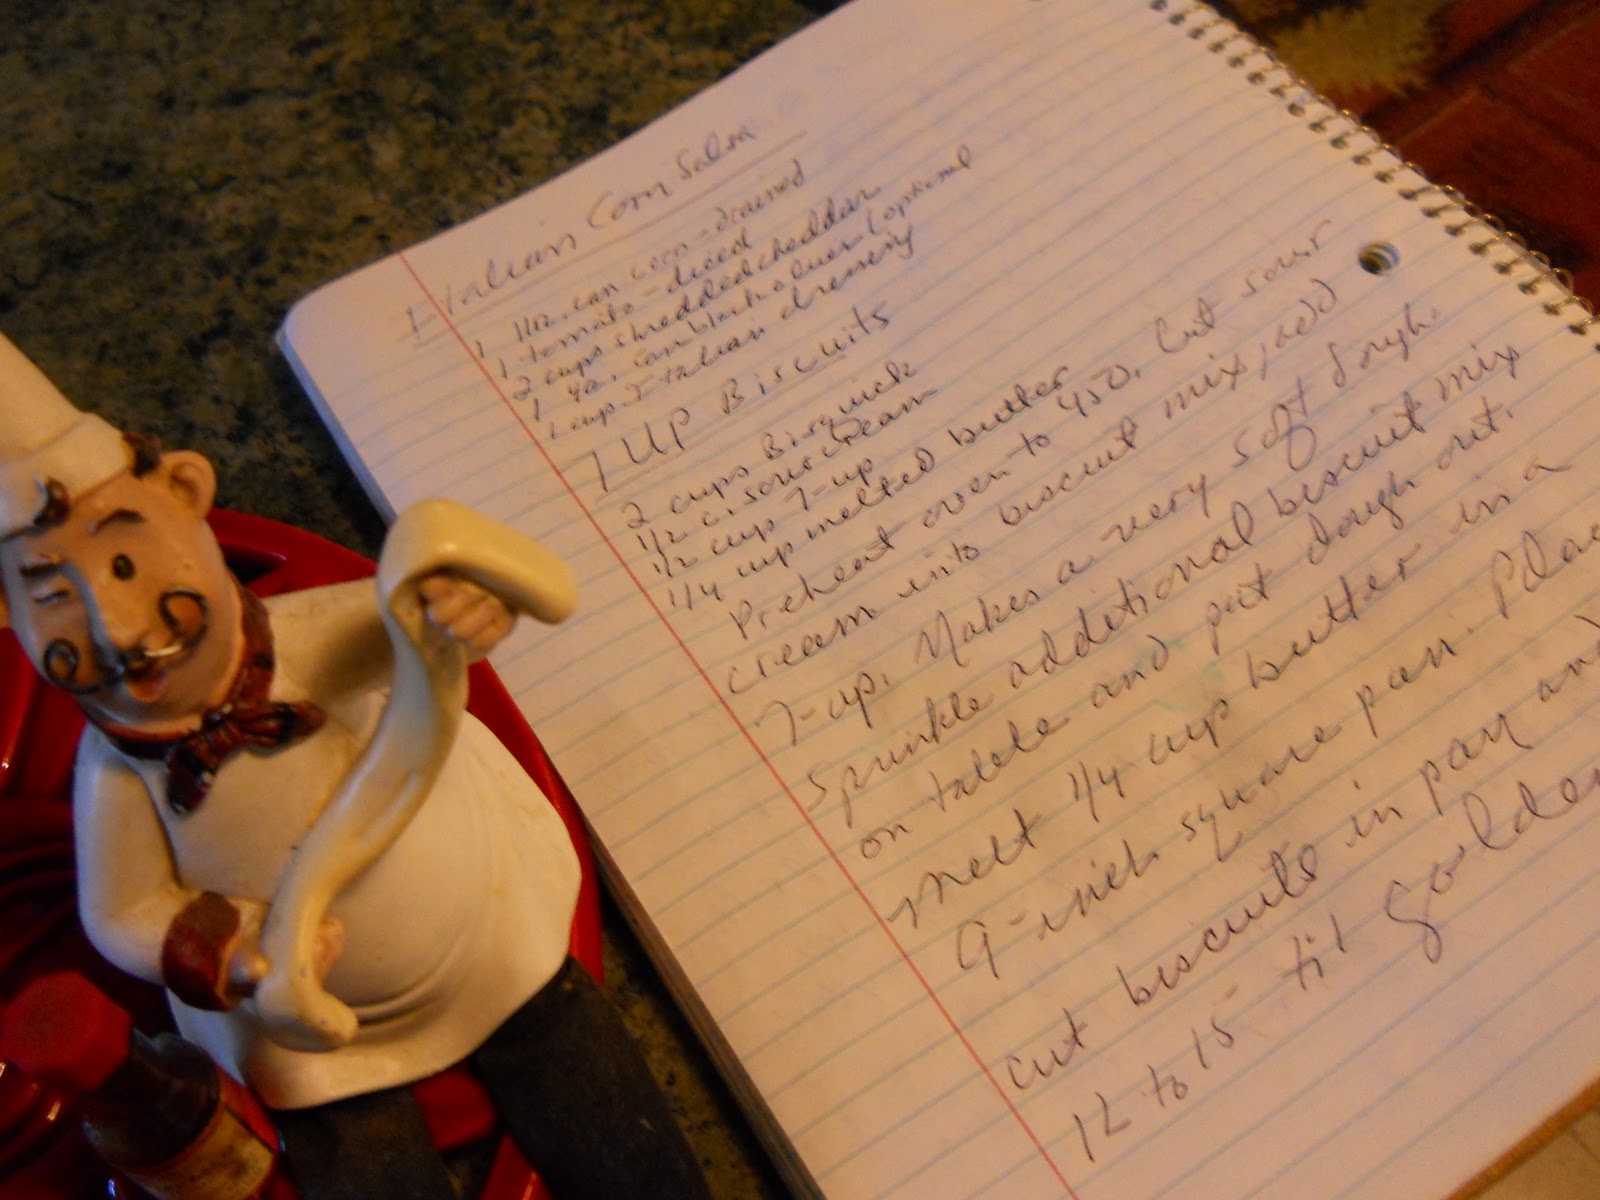 Italian Corn Salsa
1 11oz. can corn - drained
1 tomato - diced
2 cups shredded cheddar
1 4oz. can black olives (optional
1 cup Italian dressing
7 UP Biscuits
2 cups Bisquick
1/2 c. sour cream
1/2 cup 7-up
1/4 cup melted butter
Preheat oven to 450. Cut sour
cream into biscuit mix, add
7-up. Makes a very soft dough.
Sprinkle additional biscuit mix
on table and pat dough out.
Melt 1/4 cup butter in a
9-inch square pan. Place
cut biscuits in pan and
12 to 15 til golden